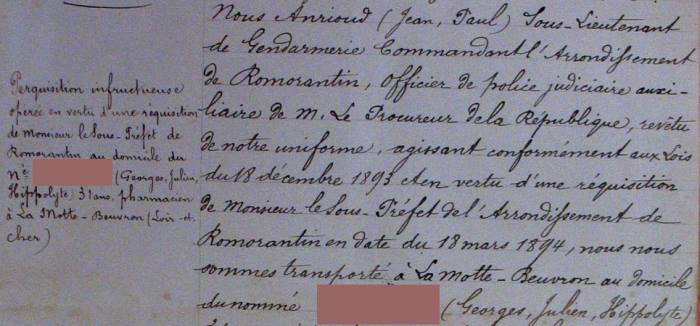 Perquisition infructueuse
opérée en vertu d'une réquisition
de Monsieur le Sous-Préfet de
Romorantin au domicile du
Né (Georges, Julien,
Hippolyte) 31 ans, pharmacien
à La Motte-Beuvron (Loir-et-
Cher)
Nous Anrioud (Jean, Paul) Sous-Lieutenant
de Gendarmerie Commandant l'Arrondissement
de Romorantin, Officier de police judiciaire auxi-
liaire de M. Le Procureur de la République, revêtu
de notre uniforme, agissant conformément aux Lois
du 18 décembre 1893 et en vertu d'une réquisition
de Monsieur le Sous-Préfet de l'Arrondissement de
Romorantin en date du 18 mars 1894, nous nous
sommes transporté à La Motte-Beuvron au domicile
du nommé (Georges, Julien, Hippolyte)